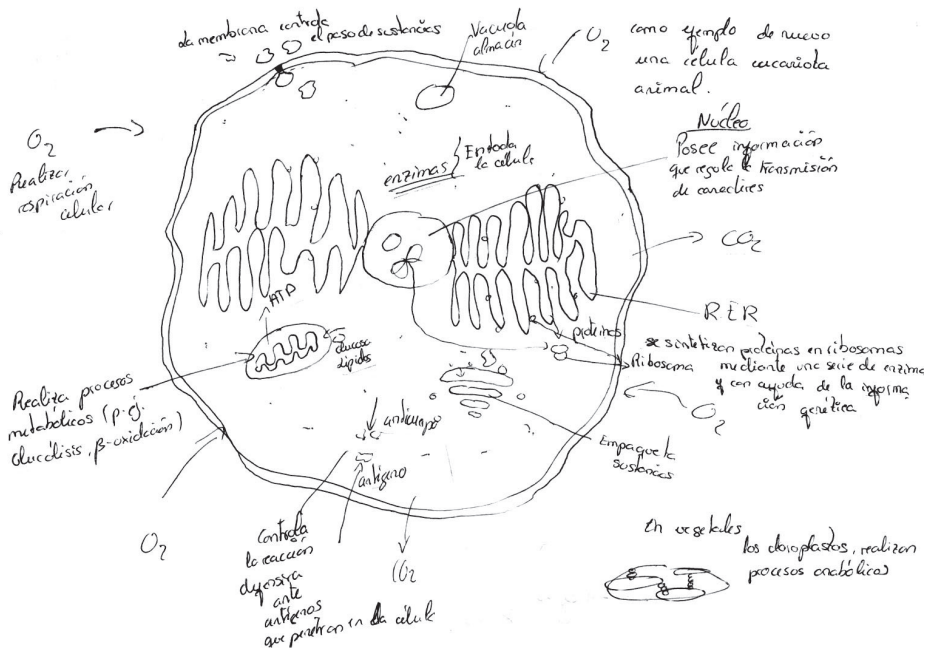 La membrana controla
el paso de sustancias
Vacuola
almacén
O2
como ejemplo de nuevo
una célula eucariota
animal.
O2
Realizar
respiración
celular
enzimas
En toda
la célula
Núcleo
Posee información
que regula la transmisión
de caracteres
CO2
ATP
RER
proteínas
se sintetizan proteínas en ribosomas
Ribosoma
mediante una serie de enzima
y con ayuda de la informa
ción genética
O2
glucosa
lípidos
Realiza procesos
metabólicos (p.ej.
Glucólisis, β-oxidación)
anticuerpo
antígeno
Empaqueta
sustancias
O2
Controla
la reacción
defensiva
ante
antígenos
que penetran en la célula
CO2
En vegetales
los cloroplastos, realizan
procesos anabólicos